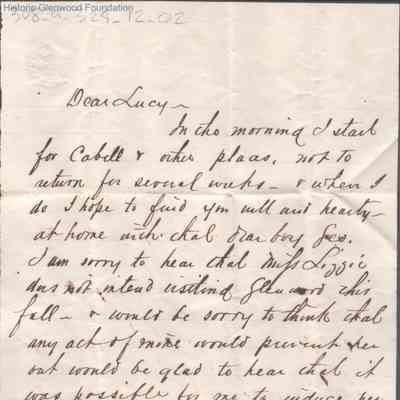 Historic Glenwood Foundation
Dear Lucy –
In the morning I start
for Cabell & other places, not to
return for several weeks – & when I
do I hope to find you well and hearty –
at home with that dear boy Geo.
I am sorry to hear that Miss Lizzie
does not intend visiting Glenwood this
fall – & would be sorry to think that
any act of mine would prevent her
but would be glad to hear that it
was possible for me to induce her